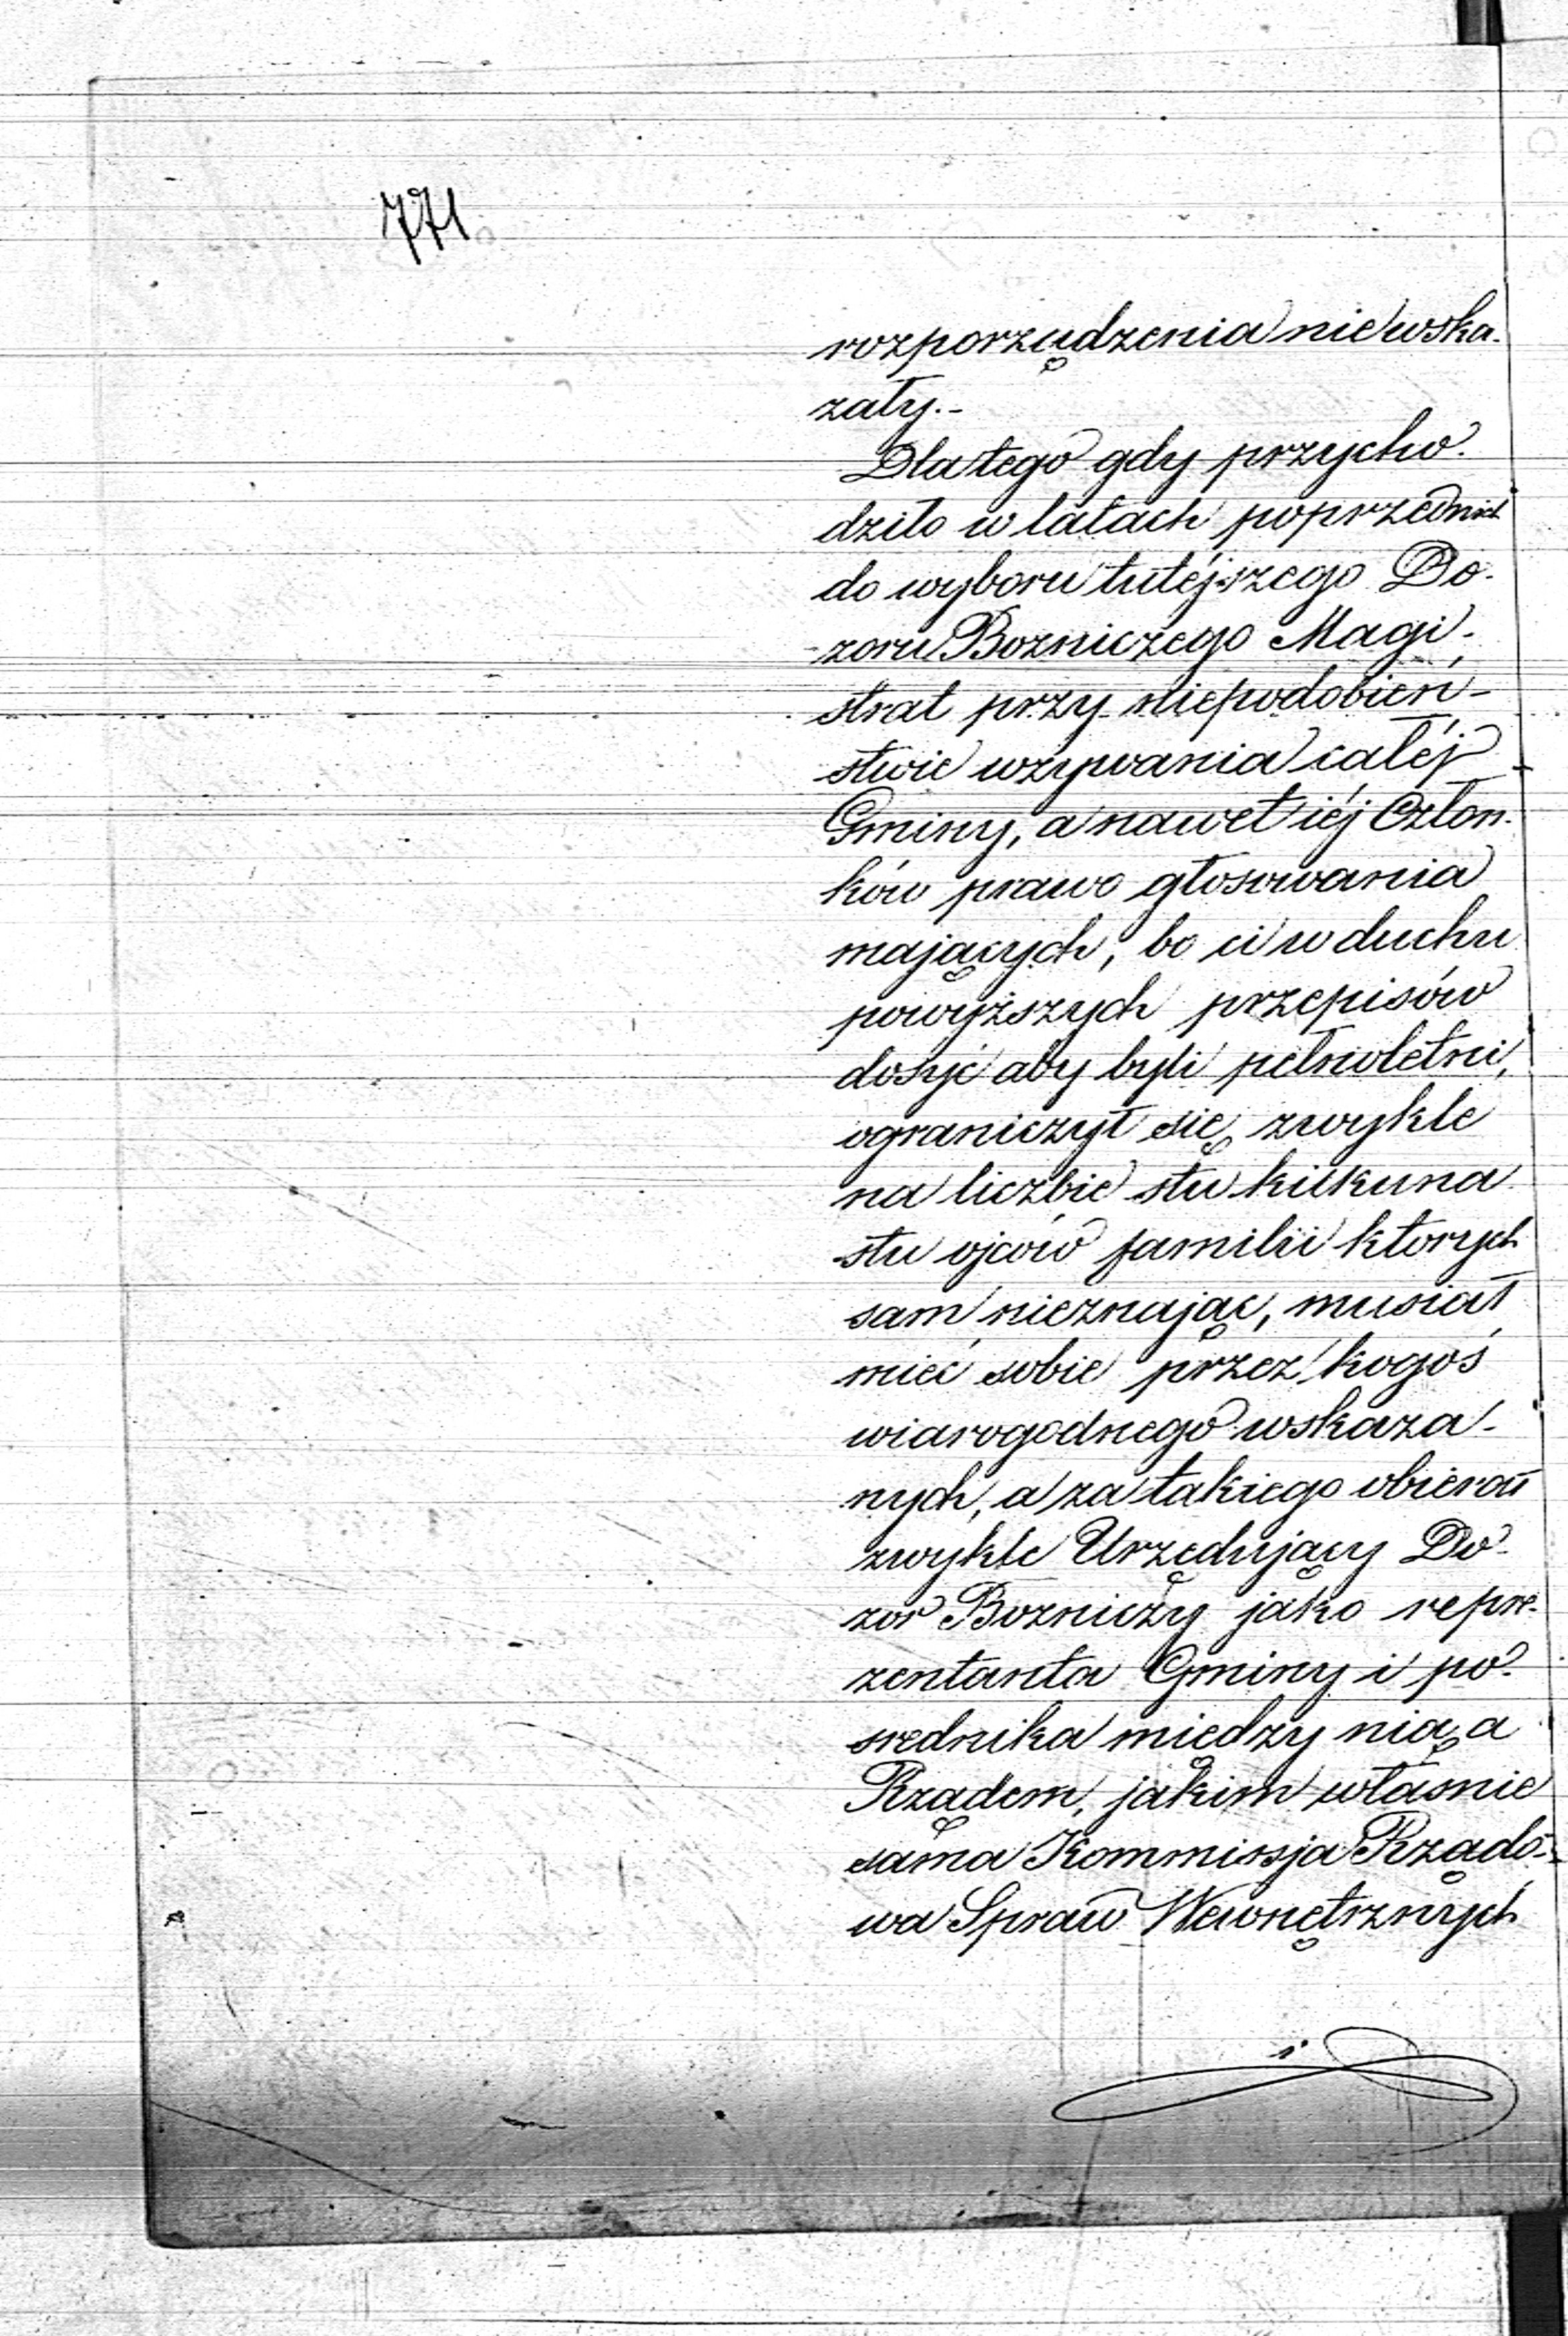 771.
rozporządzenia nie wska-
zały.-
Dlatego gdy przycho-
dziło w latach poprzednich
do wyboru tutéjszego Do-
zoru Bozniczego Magi-
strat przy niepodobień-
stwie wzywania całéj
Gminy, a nawet iéj Człon-
ków prawo głosowania
mających, bo ci w duchu
powyższych przepisów
dosyć aby byli pełnoletni,
ograniczył się zwykle
na liczbie stu kilkuna-
stu ojców familii których
sam nieznając, musiał
mieć sobie przez kogoś
wiarogodnego wskaza-
nych, a za takiego obierał
zwykle Urzędujący Do-
zor Bozniczy jako repre-
zentanta Gminy i po-
srednika między nią a
Rządem, jakim własnie
sama Kommissja Rządo-
wa Spraw Wewnętrznych
i